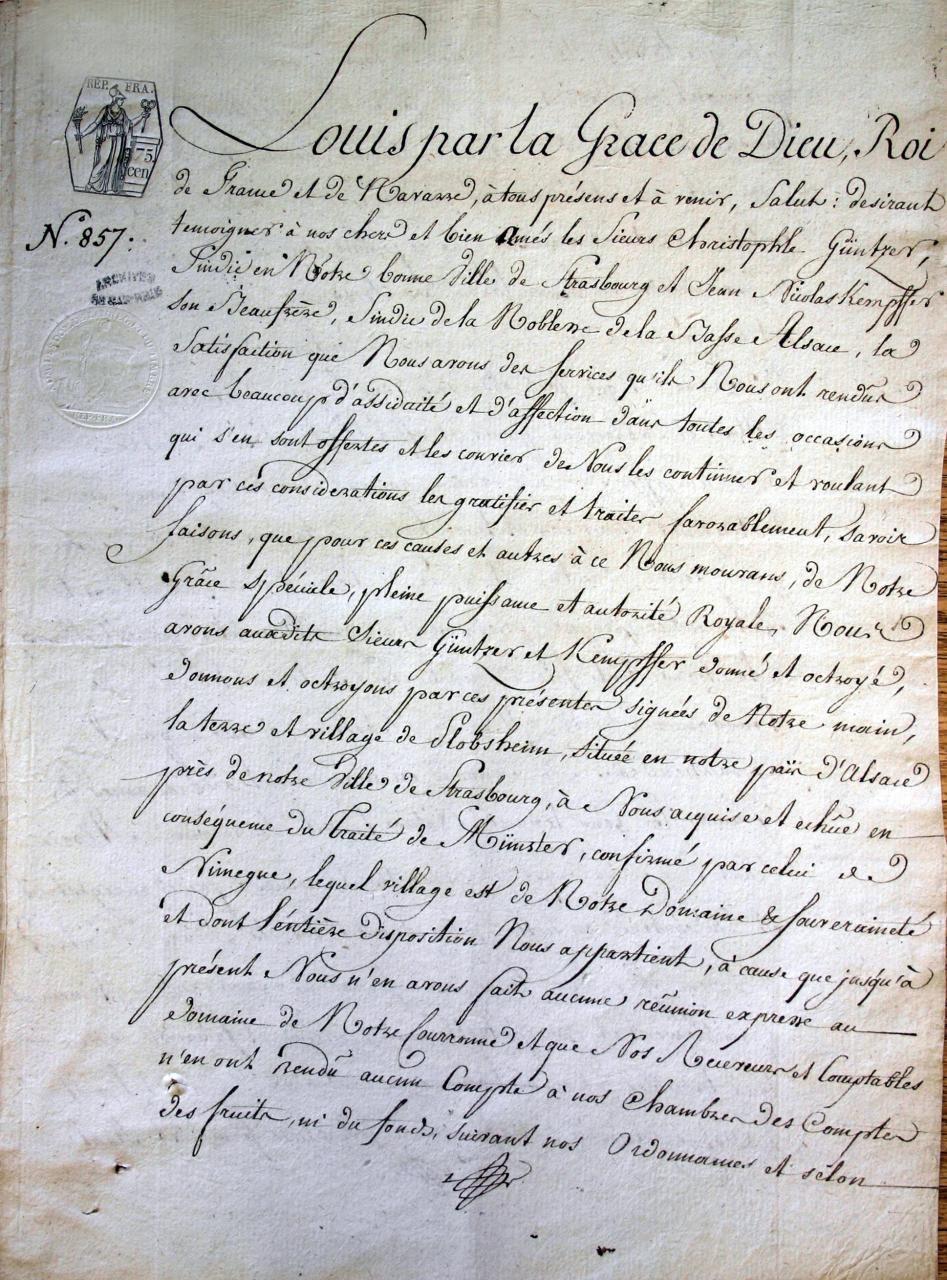 REP. FRA.
75.
cen
N.° 857.
ARCHIVES
DU BAS-RHIN
Louis par la Grace de Dieu, Roi
de France et de Navarre, à tous présens et à venir, Salut : desirant
temoigner à nos chers et bien amés les Sieurs Christophle Güntzer,
Sindic en Notre bonne Ville de Strasbourg et Jean Nicolas Kempffer
son Beaufrère, Sindic de la Noblesse de la Basse Alsace, la
Satisfaction que Nous avons des Services qu'ils Nous ont rendus
avec beaucoup d'assiduité et d'affection dans toutes les occasions
qui s'en sont offertes et les convier de Nous les continuer et voulant
par ces considerations les gratifier et traiter favorablement, savoir
faisons, que pour ces causes et autres à ce Nous mouvans, de Notre
Grâce spéciale, pleine puissance et autorité Royale, Nous
avons auxdits Sieurs Güntzer et Kempffer donné et octroyé,
donnons et octroyons par ces présentes signées de Notre main,
la terre et village de Plobsheim, située en notre païs d'Alsace
près de notre Ville de Strasbourg, à Nous acquise et echüe en
conséquence du Traité de Münster, confirmé par celui de
Nimegue, lequel village est de Notre Domaine & Souveraineté
et dont l'éntière disposition Nous appartient, à cause que jusqu'à
présent Nous n'en avons fait aucune réunion expresse au
domaine de Notre Couronne et que Nos Receveurs et Comptables
n'en ont rendu aucun Compte à nos Chambres des Comptes
des fruits, ni du fonds, suivant nos Ordonnances et selon